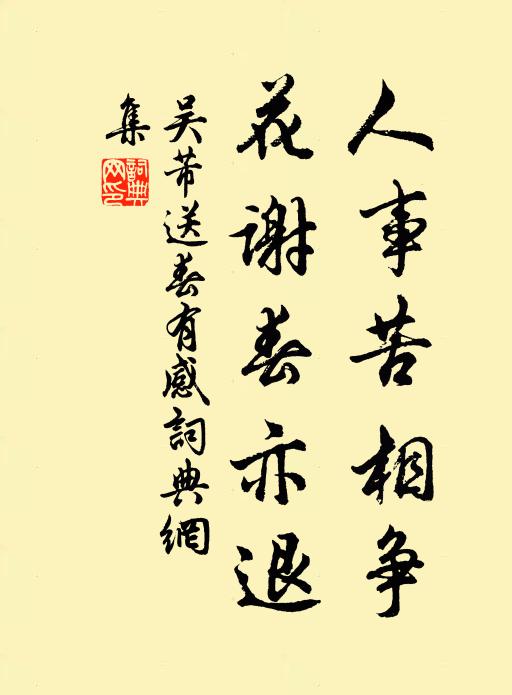 人事苦相争
花谢春亦退
吴芾送春有感詞典網
集
詞典网印